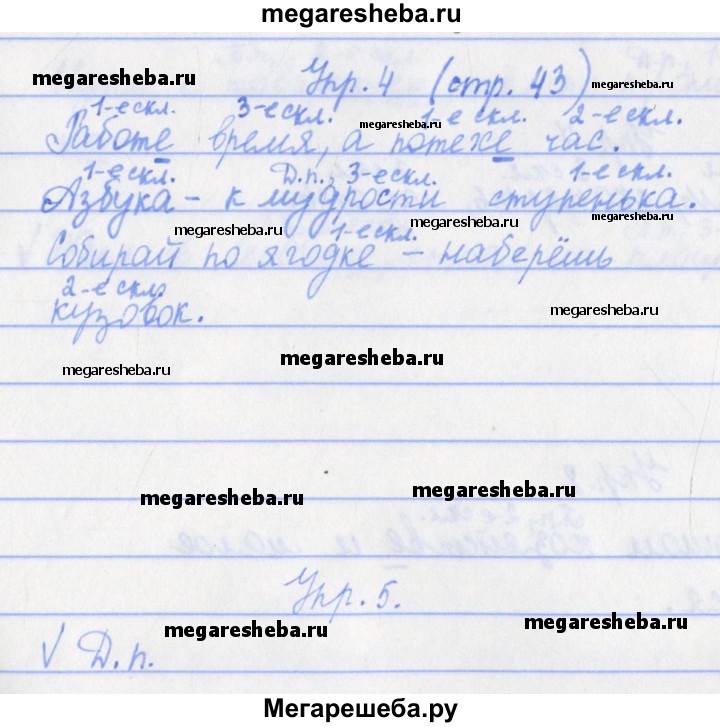 megaresheba.ru
megaresheba.ru Упр. 4 (стр. 43) megaresheba.ru
1-е скл. 3-е скл. megaresheba.ru 1-е скл. 2-е скл.
Работе время, а потехе час.
1-е скл. Д.п. 3-е скл. megaresheba.ru 1-е скл.
Азбука – к мудрости ступенька.
megaresheba.ru 1-е скл. megaresheba.ru megaresheba.ru
Собирай по ягодке – наберёшь
2-е скл. megaresheba.ru
кузовок.
megaresheba.ru megaresheba.ru
megaresheba.ru megaresheba.ru
Упр. 5.
megaresheba.ru megaresheba.ru
√ Д.п.
Мегарешеба.ру